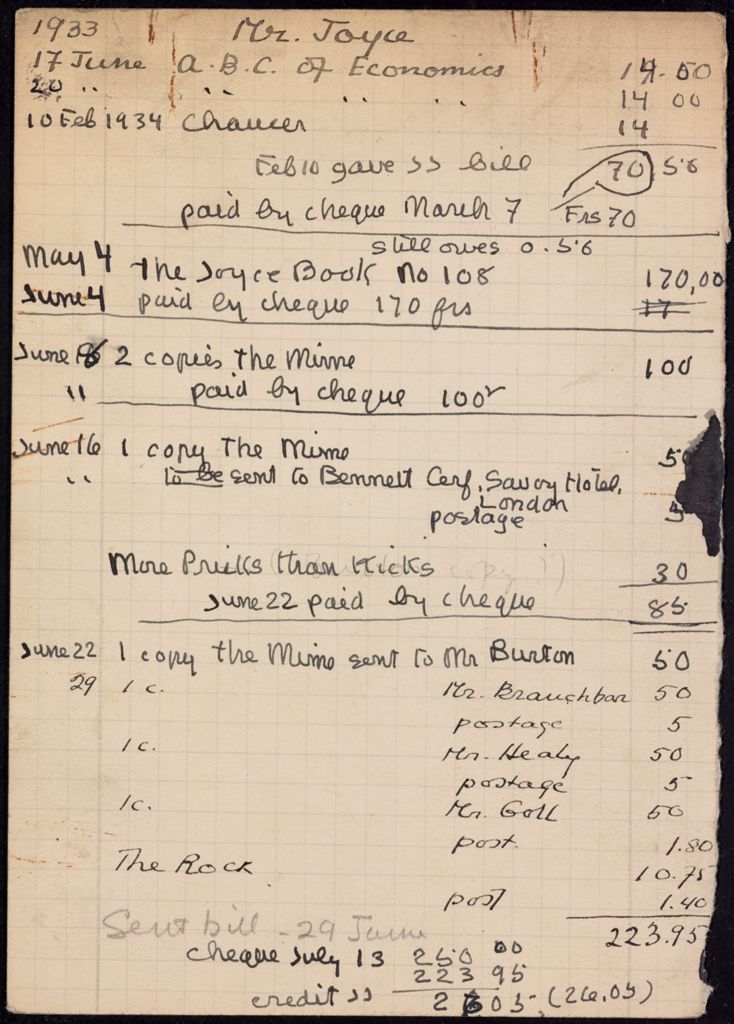 1933 Mr. Joyce
17 June A.B.C. of Economics 14.50
20 " " " " " 14 00
10 Feb 1934 Chaucer 14
Feb 10 gave JJ bill 70.56
paid by cheque March 7 Frs 70
still owes 0.56
May 4 The Joyce Book No 108 170,00
June 4 paid by cheque 170 frs 17
June 16 2 copies The Mime 100
" paid by cheque 100
June 16 1 copy The Mime 50
" to be sent to Bennett Cerf, Savoy Hotel,
London
postage 5
More Pricks than Kicks 30
June 22 paid by cheque 85
June 22 1 copy the Mime sent to Mr Burton 50
29 1 c. Mr. Brauchbar 50
postage 5
1c. Mr. Healy 50
postage 5
1c. Mr. Goll 50
post. 1.80
The Rock 10.75
post 1.40
223.95
Sent bill - 29 June
cheque July 13 250 00
223 95
credit JJ 2605, (26,05)